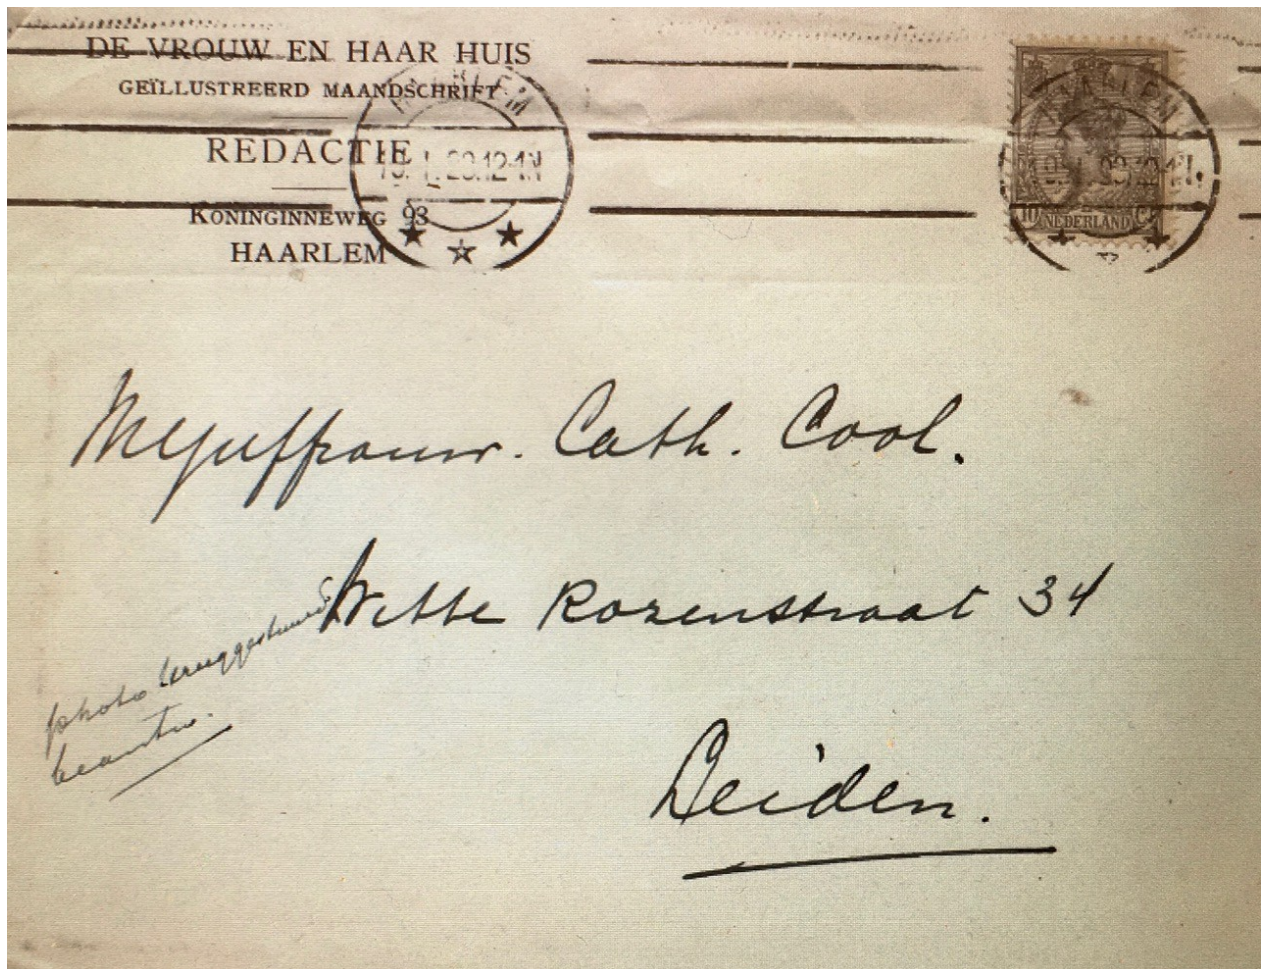 DE VROUW EN HAAR HUIS
GEÏLLUSTREERD MAANDSCHRIFT
REDACTIE
KONINGINNEWEG 93
HAARLEM
HAARLEM
12-1N
HAARLEM
10 CT
NEDERLAND
Mejuffrouw. Cath. Cool.
Witte Rozenstraat 34
Leiden.
photo teruggestuurd
beantw.